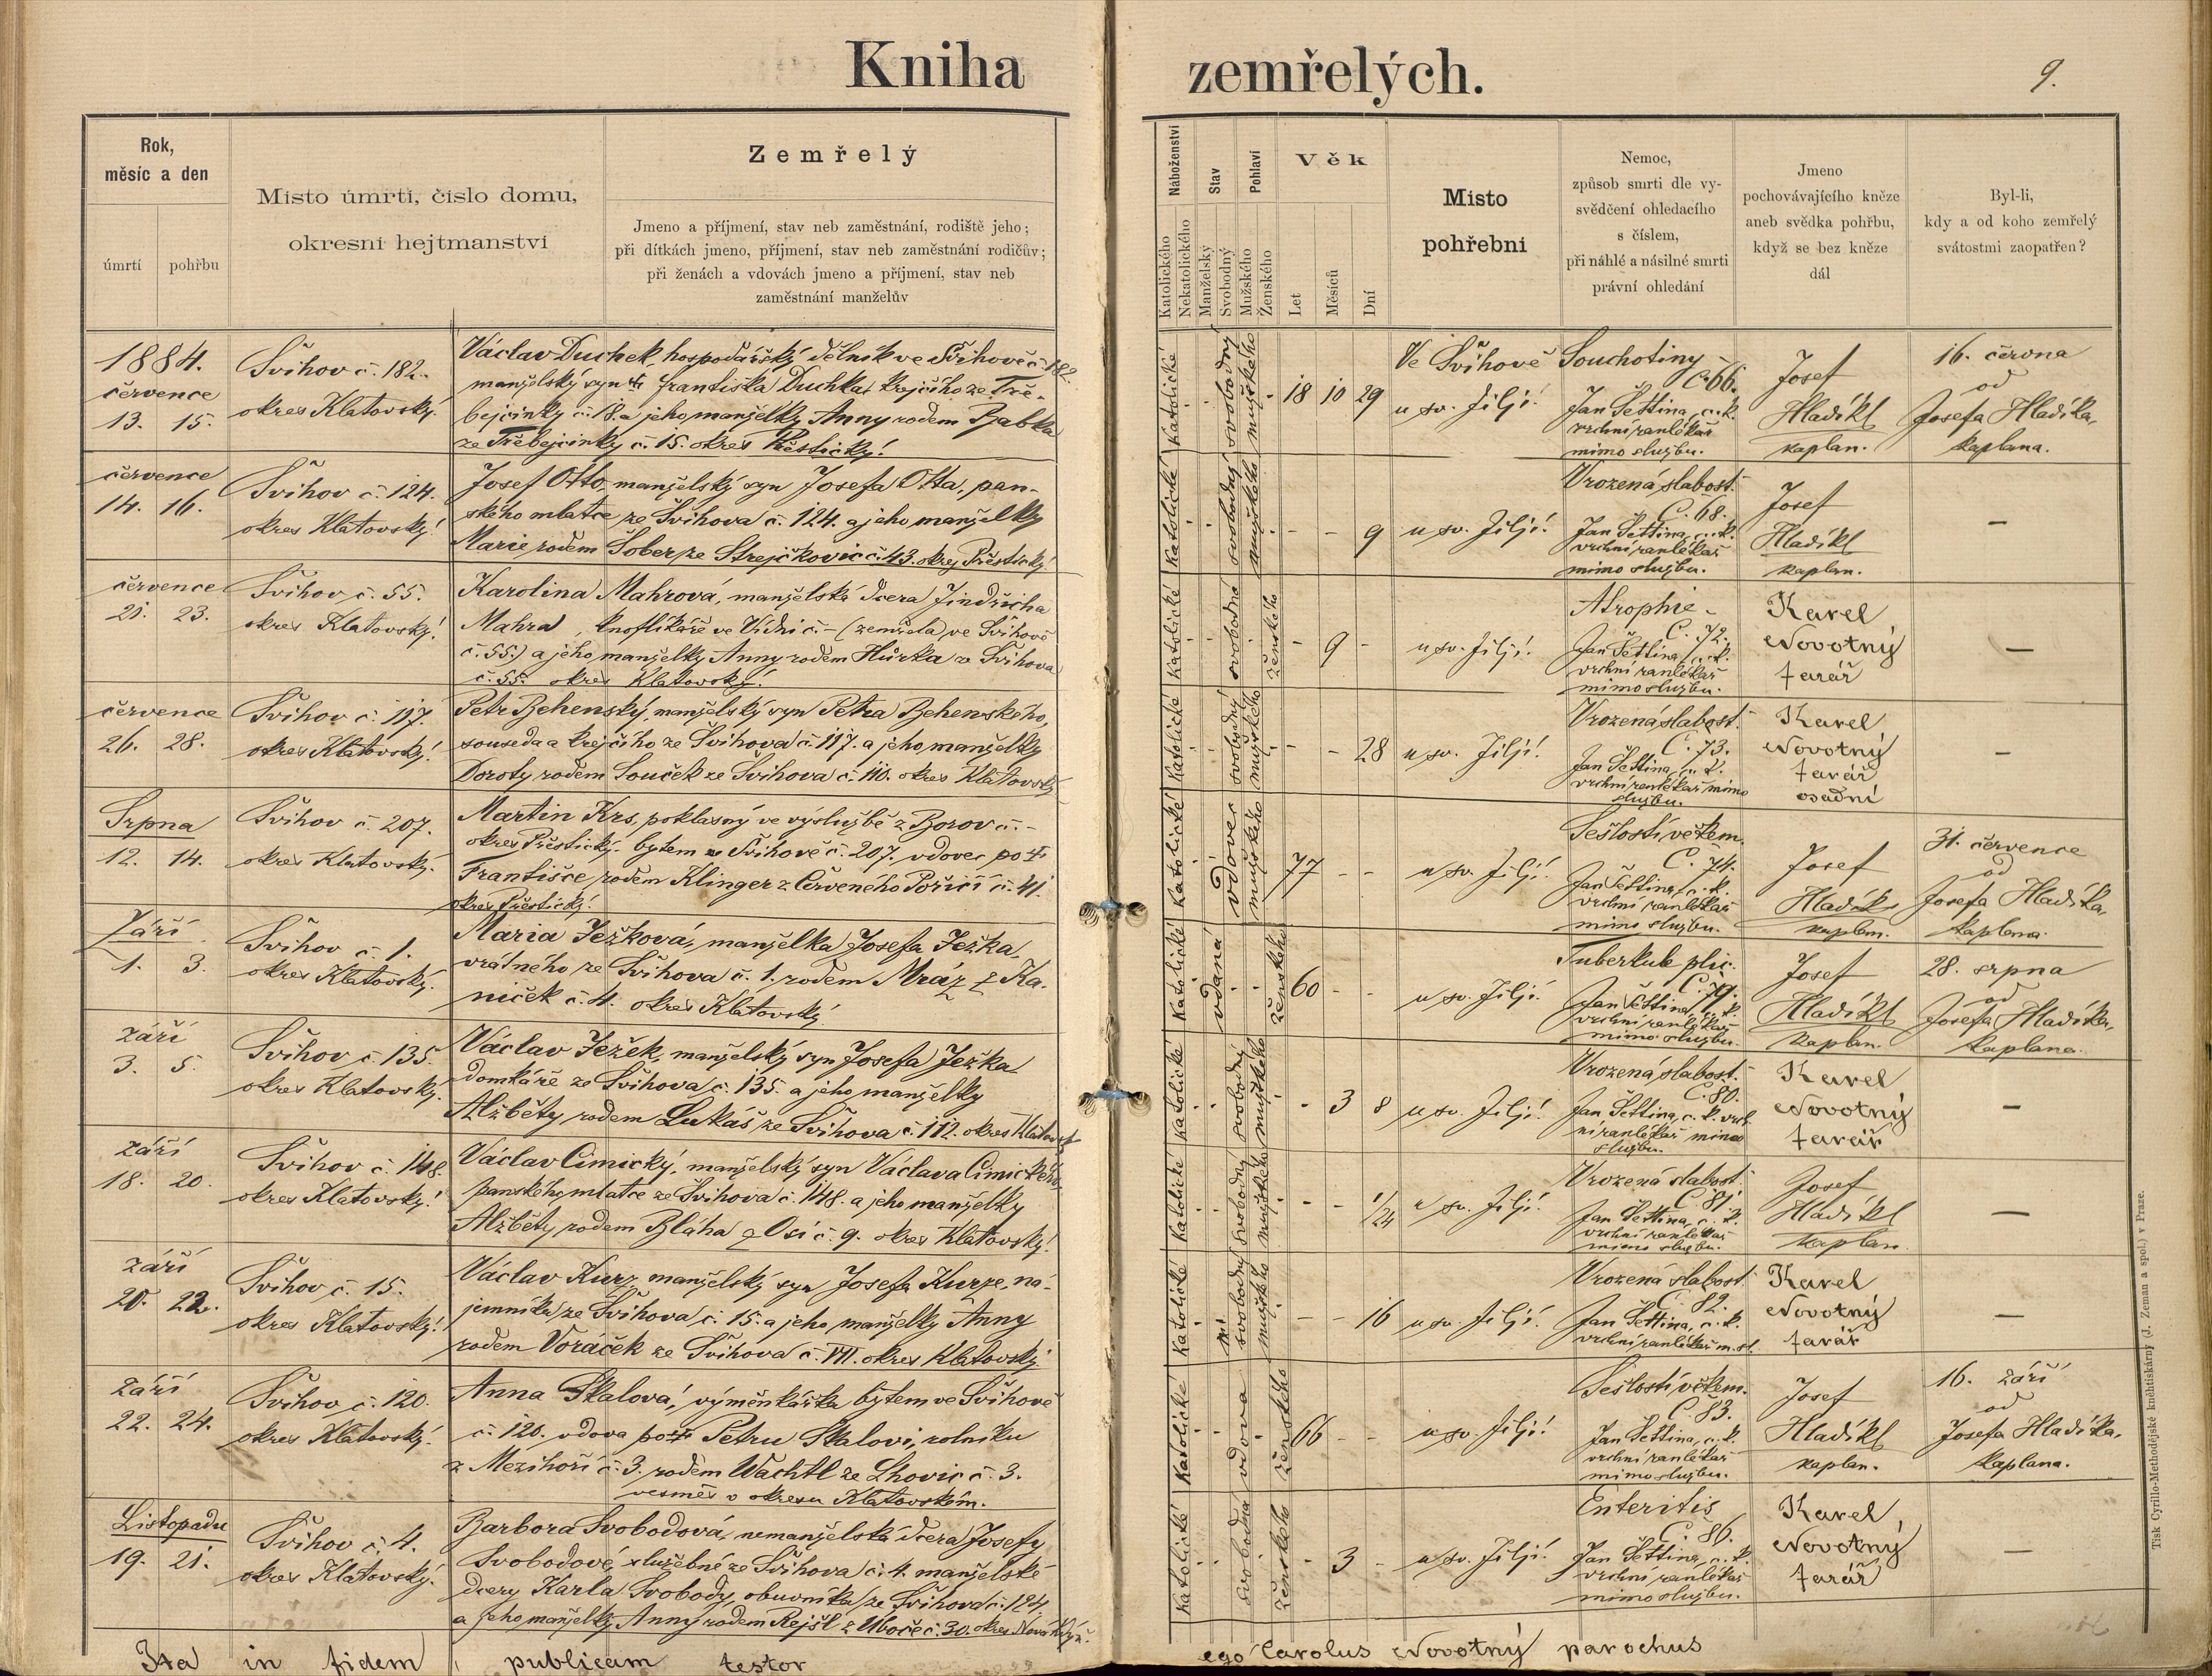 Kniha zemřelých.
9.
Rok,
měsíc a den
úmrtí
pohřbu
Místo úmrtí, číslo domu,
okresní hejtmanství
Zemřelý
Jmeno a příjmení, stav neb zaměstnání, rodiště jeho;
při dítkách jmeno, příjmení, stav neb zaměstnání rodičův;
při ženách a vdovách jmeno a příjmení, stav neb
zaměstnání manželův
Náboženství
Katolického
Nekatolického
Stav
Manželský
Svobodný
Pohlaví
Mužského
Ženského
Věk
Let
Měsíců
Dní
Místo
pohřební
Nemoc,
způsob smrti dle vy-
svědčení ohledacího
s číslem,
při náhlé a násilné smrti
právní ohledání
Jmeno
pochovávajícího kněze
aneb svědka pohřbu,
když se bez kněze
dál
Byl-li,
kdy a od koho zemřelý
svátostmi zaopatřen?
1884.
července
13. 15.
Švihov č. 182.
okres Klatovský.
Václav Duchek, hospodářský dělník ve Švihově č. 182.
manželský syn Františka Duchka, krejčího ze Tře-
bejcinky č. 18. a jeho manželky Anny rodem Bjabka
ze Třebejcinky č. 15. okres Přestický.
Katolické
svobodný
mužského
18 10 29
Ve Švihově
u sv. Jiljí.
Souchotiny
Č. 66.
Jan Šettina, c. k.
vrchní ranlékař
mimo službu.
Josef
Hladíkl
kaplan.
16. června
od
Josefa Hladíka,
kaplana.
července
14. 16.
Švihov č. 124.
okres Klatovský.
Josef Otto, manželský syn Josefa Otta, pan-
ského mlatce ze Švihova č. 124. a jeho manželky
Marie rodem Šober ze Strejčkovic č. 43. okres Přestický.
Katolické
svobodný
mužského
- - 9
u sv. Jiljí.
Vrozená slabost.
Č. 68.
Jan Šettina, c. k.
vrchní ranlékař
mimo službu.
Josef
Hladíkl
kaplan.
-
července
21. 23.
Švihov č. 55.
okres Klatovský.
Karolina Mahrová, manželská dcera Jindřicha
Mahra, knoflíkáře ve Vídni č. - (zemřela) ve Švihově
č. 55.) a jeho manželky Anny rodem Hůrka ze Švihova
č. 55. okres Klatovský.
Katolické
svobodná
ženského
- 9 -
u sv. Jiljí.
Atrophie -
Č. 72.
Jan Šettina, c. k.
vrchní ranlékař
mimo službu.
Karel
Novotný
farář
-
července
26. 28.
Švihov č. 117.
okres Klatovský.
Petr Behenský, manželský syn Petra Behenského,
souseda a krejčího ze Švihova č. 117. a jeho manželky
Doroty rodem Souček ze Švihova č. 110. okres Klatovský
Katolické
svobodný
mužského
- - 28
u sv. Jiljí.
Vrozená slabost.
Č. 73.
Jan Šettina, c. k.
vrchní ranlékař mimo
službu.
Karel
Novotný
farář
osadní
-
Srpna
12. 14.
Švihov č. 207.
okres Klatovský.
Martin Krs, poklasný ve výslužbě z Borov č. -
okres Přestický. bytem ve Švihově č. 207. vdovec po †
Františce rodem Klinger z Červeného Poříčí č. 41.
okres Přestický.
Katolické
vdovec
mužského
77 - -
u sv. Jiljí.
Sešlostí věkem.
Č. 74.
Jan Šettina, c. k.
vrchní ranlékař
mimo službu.
Josef
Hladík
kaplan.
31. července
od
Josefa Hladíka,
kaplana.
Září
1. 3.
Švihov č. 1.
okres Klatovský.
Maria Ježková, manželka Josefa Ježka,
vrátného ze Švihova č. 1. rodem Mráz z Ka-
níček č. 4. okres Klatovský.
Katolické
vdaná
ženského
60 - -
u sv. Jiljí.
Tuberkule plic.
Č. 79.
Jan Šettina, c. k.
vrchní ranlékař
mimo službu.
Josef
Hladíkl
kaplan.
28. srpna
od
Josefa Hladíka,
kaplana.
září
3. 5.
Švihov č. 135.
okres Klatovský.
Václav Ježek, manželský syn Josefa Ježka
domkáře ze Švihova č. 135. a jeho manželky
Alžběty rodem Lukáš ze Švihova č. 112. okres Klatovský
Katolické
svobodný
mužského
- 3 8
u sv. Jiljí.
Vrozená slabost.
Č. 80.
Jan Šettina, c. k. vrch
ní ranlékař mimo
službu.
Karel
Novotný
farář
-
září
18. 20.
Švihov č. 148.
okres Klatovský.
Václav Cimický, manželský syn Václava Cimického,
panského mlatce ze Švihova č. 148. a jeho manželky
Alžběty rodem Bláha z Osí č. 9. okres Klatovský.
Katolické
svobodný
mužského
- - 1/24
u sv. Jiljí.
Vrozená slabost.
Č. 81.
Jan Šettina, c. k.
vrchní ranlékař
mimo službu.
Josef
Hladíkl
kaplan.
-
září
20. 22.
Švihov č. 15.
okres Klatovský.
Václav Kurz, manželský syn Josefa Kurze, ná-
jemníka ze Švihova č. 15. a jeho manželky Anny
rodem Voráček ze Švihova č. VII. okres Klatovský.
Katolické
svobodný
mužského
- - 16
u sv. Jiljí.
Vrozená slabost.
Č. 82.
Jan Šettina, c. k.
vrchní ranlékař m. sl.
Karel
Novotný
farář
-
září
22. 24.
Švihov č. 120.
okres Klatovský.
Anna Skalová, výměnkářka bytem ve Švihově
č. 120. vdova po † Petru Skalovi, rolníku
z Mezihoří č. 3. rodem Wachtl ze Lhovic č. 3.
vesměs v okresu Klatovském.
Katolické
vdova
ženského
66 - -
u sv. Jiljí.
Sešlostí věkem.
Č. 83.
Jan Šettina, c. k.
vrchní ranlékař
mimo službu.
Josef
Hladíkl
kaplan.
16. září
od
Josefa Hladíka,
kaplana.
Listopadu
19. 21.
Švihov č. 4.
okres Klatovský.
Barbora Svobodová, nemanželská dcera Josefy
Svobodové, služebné ze Švihova č. 4. manželské
dcery Karla Svobody, obuvníka ze Švihova č. 124.
a jeho manželky Anny rodem Rejšl z Úboče č. 30. okres Nová Kdyň.
Katolické
svobodná
ženského
- 3 -
u sv. Jiljí.
Enteritis
Č. 86.
Jan Šettina, c. k.
vrchní ranlékař
mimo službu.
Karel
Novotný
farář
-
Ita in fidem publicam testor ego Carolus Novotný parochus
Tisk Cyrillo-Methodějské knihtiskárny (J. Zeman a spol.) v Praze.